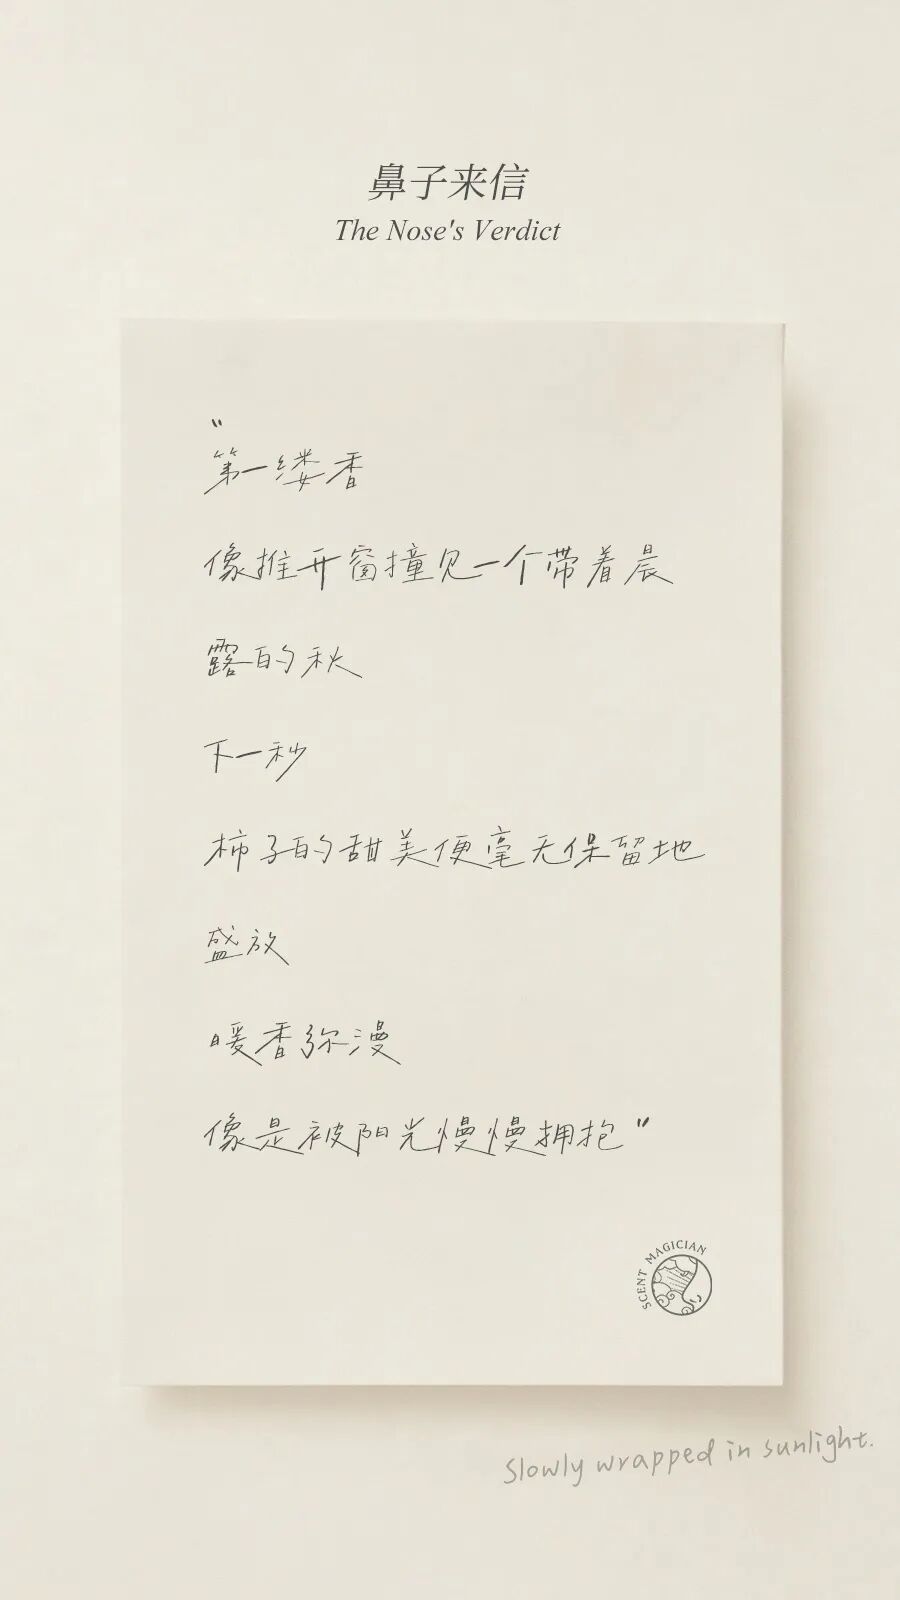 鼻子来信
The Nose's Verdict
“
第一缕香
像推开窗撞见一个带着晨
露的秋
下一秒
柿子的甜美便毫无保留地
盛放
暖香弥漫
像是被阳光慢慢拥抱”
SCENT MAGICIAN
Slowly wrapped in sunlight.